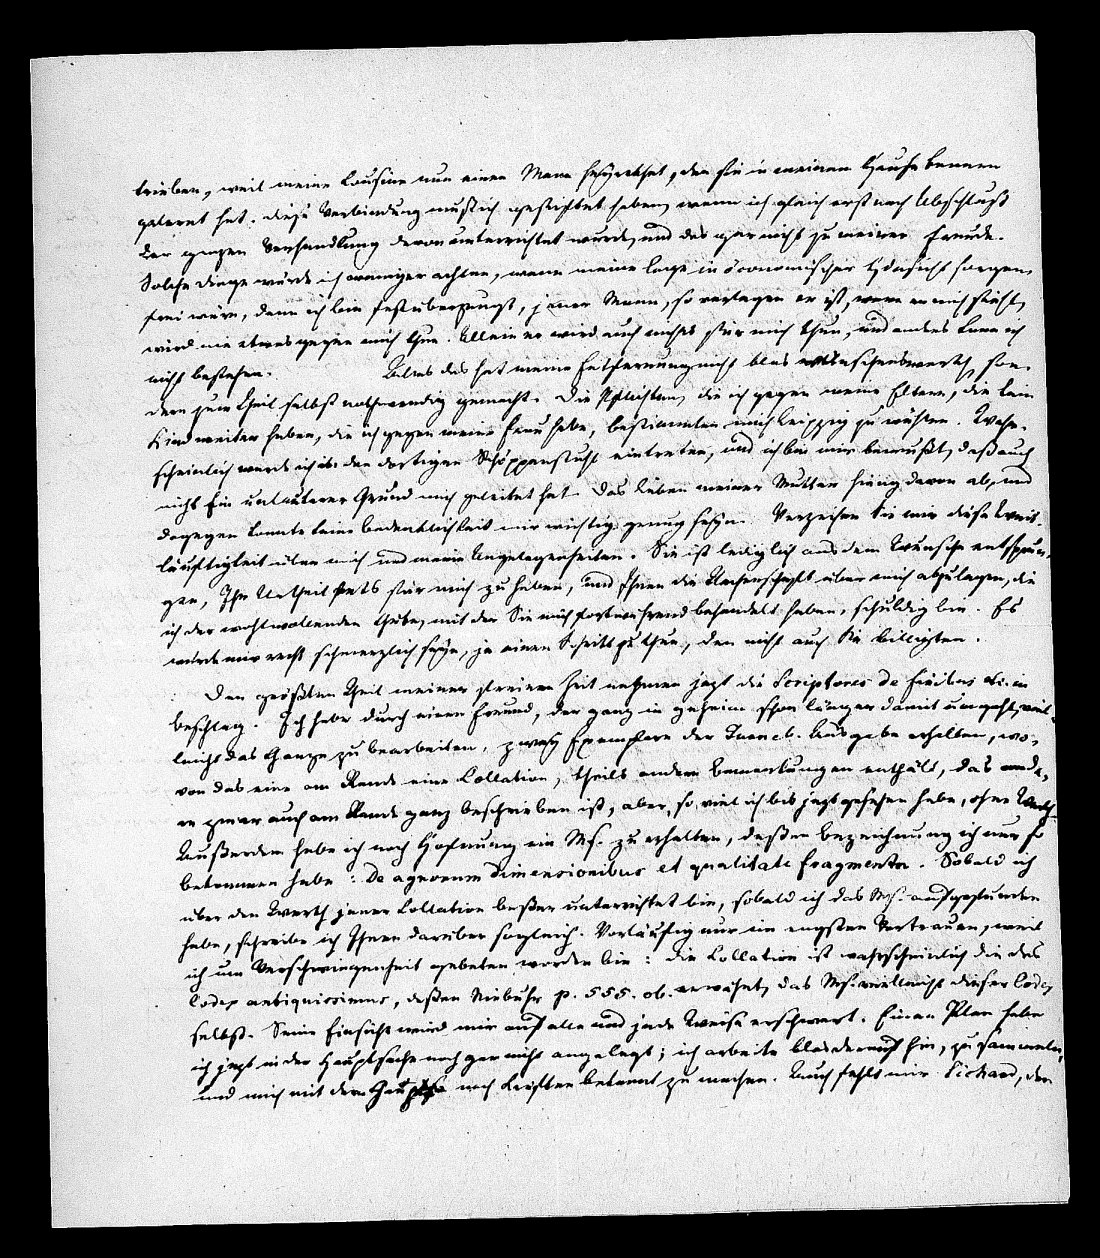 trieben, weil meine Cousine nun einen Mann heyrathet, den sie in meinem Hause kennen
gelernt hat. Diese Verbindung muß ich gestiftet haben, wenn ich gleich erst nach Abschluß
der ganzen Verhandlung davon unterrichtet wurde, und das gar nicht zu meiner Freude.
Solche Dinge würde ich weniger achten, wenn meine Lage in öconomischer Hinsicht sorgen-
frei wäre, denn ich bin fest überzeugt, jener Mann, so verlegen er ist, wenn er mich sieht,
wird nie etwas gegen mich thun. Allein er wird auch nichts für mich thun, und anders kann ich
nicht bestehen. Alles das hat meine Entfernung nicht blos wünschenswerth, son-
dern zum Theil selbst nothwendig gemacht. Die Pflichten, die ich gegen meine Eltern, die kein
Kind weiter haben, die ich gegen meine Frau habe, bestimmten mich Leipzig zu wählen. Wahr-
scheinlich werde ich in den dortigen Schöppenstuhl eintreten, und ich bin mir bewußt, daß auch
nicht Ein unlauterer Grund mich geleitet hat. Das Leben meiner Mutter hing davon ab, und
dagegen konnte keine Bedenklichkeit mir wichtig genug seyn. Verzeihen Sie mir diese Weit-
läuftigkeit über mich und meine Angelegenheiten. Sie ist lediglich aus dem Wunsche entsprun-
gen, Ihr Urtheil stets für mich zu haben, und Ihnen die Rechenschaft über mich abzulegen, die
ich der wohlwollenden Güte, mit der Sie mich fortwährend behandelt haben, schuldig bin. Es
würde mir recht schmerzlich seyn, je einen Schritt zu thun, den nicht auch Sie billigten.
Den größten Theil meiner freien Zeit nehmen jetzt die Scriptores de finibus etc. in
Beschlag. Ich habe durch einen Freund, der ganz in geheim schon länger damit umgeht, viel-
leicht das Ganze zu bearbeiten, zwey Exemplare der Turneb. Ausgabe erhalten, wo-
von das eine am Rande eine Collation, theils andere Bemerkungen enthält, das ande-
re zwar auch am Rande ganz beschrieben ist, aber, so viel ich bis jetzt gesehen habe, ohne Werth.
Außerdem habe ich noch Hofnung ein Ms. zu erhalten, deßen Bezeichnung ich nur so
bekommen habe: De agrorum dimensionibus et qualitate fragmenta. Sobald ich
über den Werth jener Collation beßer unterrichtet bin, sobald ich das Ms. aufgefunden
habe, schreibe ich Ihnen darüber sogleich. Vorläufig nur im engsten Vertrauen, weil
ich um Verschwiegenheit gebeten worden bin: die Collation ist wahrscheinlich die des
Codex antiquissimus, deßen Niebuhr p. 555. ob. erwähnt, das Ms. vielleicht dieser Codex
selbst. Seine Einsicht wird mir auf alle und jede Weise erschwert. Einen Plan habe
ich jetzt in der Hauptsache noch gar nicht angelegt; ich arbeite blos darauf hin, zu sammeln,
und mich mit dem Ganzen nach Kräften bekannt zu machen. Auch fehlt mir Sichard, den